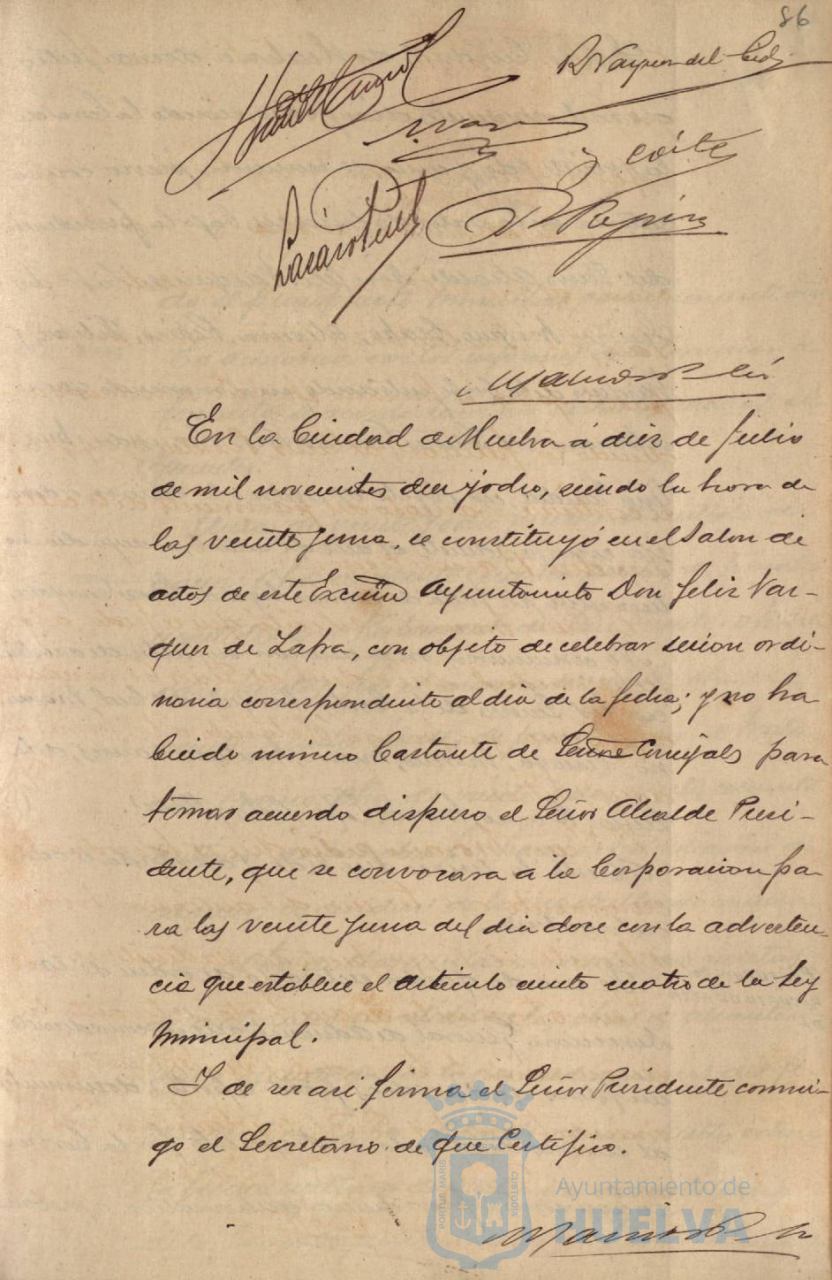 86
y corte
En la Ciudad de Huelva á diez de Julio
de mil novecientos diez y ocho, siendo la hora de
las veinte y una, se constituyó en el Salon de
actos de este Excmo Ayuntamiento Don Felix Vaz-
quez de Zafra, con objeto de celebrar sesion ordi-
naria correspondiente al dia de la fecha; y no ha
biendo número bastante de Señores Concejales para
tomar acuerdo dispuso el Señor Alcalde Presi-
dente, que se convocara a la Corporacion pa-
ra las veinte y una del dia doce con la adverten-
cia que establece el articulo ciento cuatro de la Ley
Municipal.
Y de ser asi firma el Señor Presidente conmi-
go el Secretario de que Certifico.
PORTUS MARIS CUSTODIA
Ayuntamiento de
HUELVA